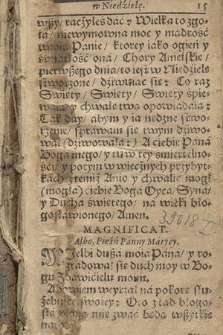 w Niedzielę. 15
wszy/ raczyłeś dać? Wielka to zgo-
ła/ niewymowna moc y mądrość
twoia Panie/ ktorey iako ogień y
światłość ona/ Chory Anielskie/
pierwszego dnia/ to iest w Niedziele
stworzone/ dziwuiąc się: Co raz
Swięty/ Swięty/ Swięty śpie-
waią y chwałę twą opowiadaią:
Tak day/ abym y ia nędzne stwo-
rzenie/ sprawam się twym dziwo-
wał/ dziwowała: A ciebie Paná
Bogá mego/ y tu w tey śmiertelno-
ści/ y potym w wiecznych przybyt-
kach
mogła) ciebie Bogá Oycá/ Syná/
y Ducha świętego/ na wieki bło-
gosławionego/ Amen.
39018 I
MAGNIFICAT.
Albo, Pieśń Panny Maryey.
Wielbi duszá moiá Páná/ y ro-
zradował się duch moy w Bo-
gu Zbáwicielu moim.
Abowiem weyrzał ná pokorę słu-
żebnice swoiey: Oto ząd błogo-